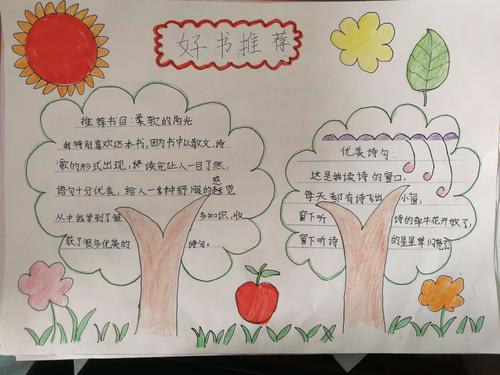 好书推荐
推荐书目:柔软的阳光
我特别喜欢这本书,因为书中以散文、诗
歌的形式出现,读完让人一目了然,
语句十分优美,给人一种舒服的感觉
从中我学到了很多知识,收
获了很多优美的诗句。
优美诗句:
这是我读诗的窗口,
每天都有诗飞出小窗,
窗下听诗的牵牛花开放了,
窗下听诗的星星